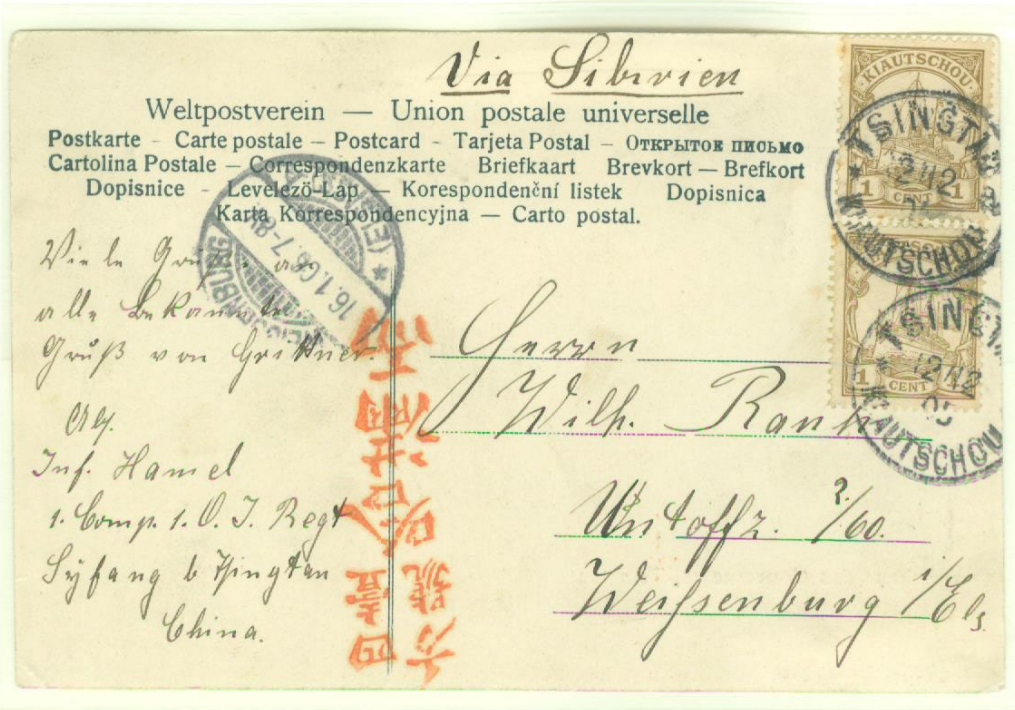 Via Sibirien
Weltpostverein — Union postale universelle
Postkarte - Carte postale – Postcard - Tarjeta Postal - ОТКРЫТОЕ ПИСЬМО
Cartolina Postale - Correspondenzkarte Briefkaart Brevkort – Brefkort
Dopisnice - Levelező-Lap — Korespondenční listek Dopisnica
Karta Korrespondencyjna — Carto postal.
KIAUTSCHOU
1 CENT 1
TSINGTAU
KIAUTSCHOU
1 CENT
TSINGTAU
KIAUTSCHOU
16.1.06.7-8
Viele Grüße an
alle Bekannte
Gruß von
Inf. Hamel
1. Comp. 1. O. I. Regt
Syfang b Tsingtau
China.
Herrn
Wilh.
Untoffz. 2./60.
Weißenburg i/Els.